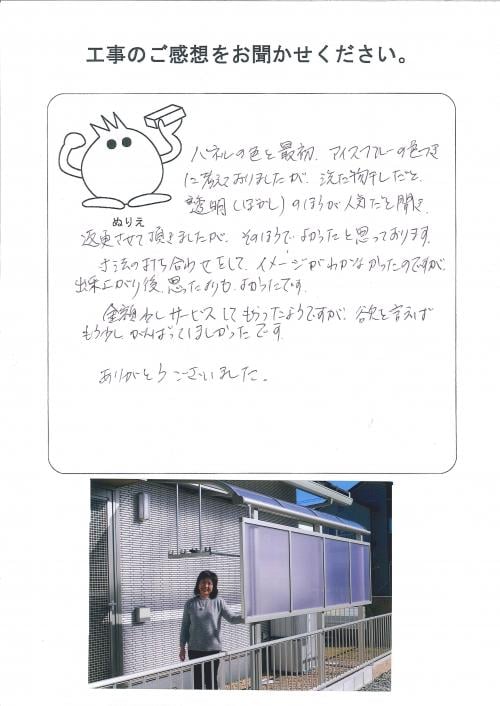 工事のご感想をお聞かせください。
パネルの色を最初、アイスブルーの色つき
に考えておりましたが、洗た物干しだと、
透明(ぼかし)のほうが人気だと聞き、
ぬりえ
変更させて頂きましたが、そのほうでよかったと思っております。
寸法の打ち合わせをして、イメージがわかなかったのですが、
出来上がり後、思ったよりも、よかったです。
金額少しサービスしてもらったようですが、欲を言えば
もう少しがんばってほしかったです。
ありがとうございました。